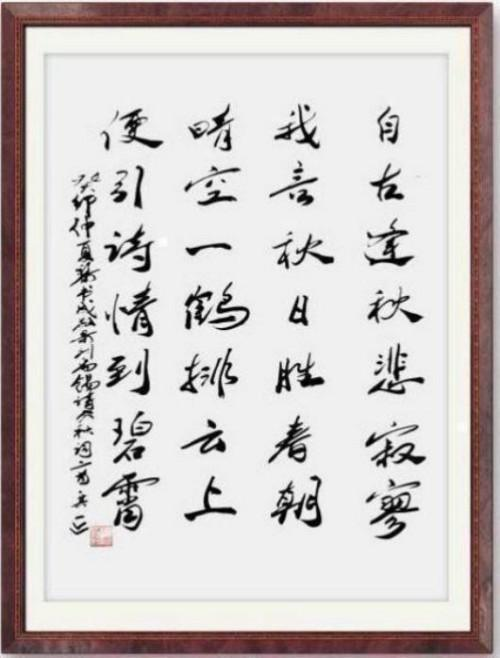 自古逢秋悲寂寥
我言秋日胜春朝
晴空一鹤排云上
便引诗情到碧霄
癸卯仲夏 书 刘禹锡诗 秋词